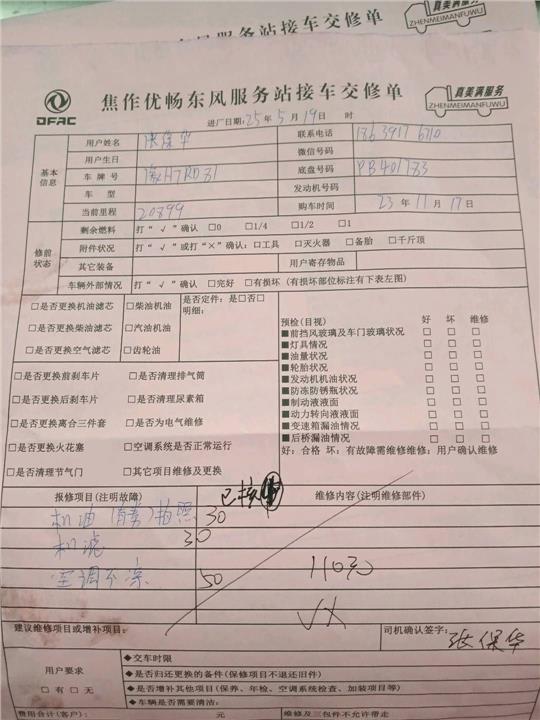 东风服务站接车交修单
真美满服务
ZHENMEIMANFUWU
DFAC
焦作优畅东风服务站接车交修单
真美满服务
ZHENMEIMANFUWU
进厂日期:25年5月19日 时
基本信息
用户姓名 张保华 联系电话
用户生日 微信号码
车牌号 底盘号码 PB401783
车型 发动机号码
当前里程 20899 购车时间 23年11月17日
修前状态
剩余燃料 打“√”确认 □0 □1/4 □1/2 □1
附件状况 打“√”或打“×”确认:□工具 □灭火器 □备胎 □千斤顶
其它装备 用户寄存物品
车辆外部情况 打“√”确认 □完好 □有损坏(有损坏部位标注有下表左图)
□是否更换机油滤芯 □柴油机油 是否定件:是□否□
明细:
□是否更换柴油滤芯 □汽油机油
□是否更换空气滤芯 □齿轮油
预检(目视) 好 坏 维修
■前挡风玻璃及车门玻璃状况 □ □ □
■灯具情况 □ □ □
■油量状况 □ □ □
■轮胎状况 □ □ □
■发动机机油状况 □ □ □
■防冻防锈瓶状况 □ □ □
■制动液液面 □ □ □
■动力转向液液面 □ □ □
■变速箱漏油情况 □ □ □
■后桥漏油情况 □ □ □
好:合格 坏:有故障需维修维修:用户确认维修
□是否更换前刹车片 □是否清理排气筒
□是否更换后刹车片 □是否清理尿素箱
□是否更换离合三件套 □是否为电气维修
□是否更换火花塞 □空调系统是否正常运行
□是否清理节气门 □其它项目维修及更换
报修项目(注明故障) 已核 维修内容(注明维修部件)
机油 拍照 30
机滤 30
空调不凉 50 110元
建议维修项目或增补项目: 司机确认签字: 张保华
用户要求
□有 □无
◆交车时限
◆是否归还更换的备件(保修项目不退还旧件)
◆是否增补其他项目(保养、年检、空调系统检查、加装项目等)
◆车辆是否需要清洁:
费用合计(客户): 元 维修及三包件不允许带走